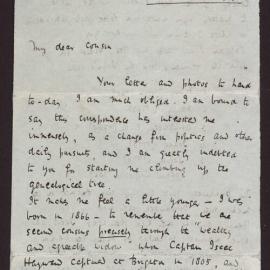 My dear Cousin
Your letter and photos to hand
to-day. I am much obliged. I am bound to
say this correspondence has interested me
immensely, as a change from politics and other
daily pursuits, and I am greatly indebted
to you for starting me climbing up the
genealogical tree.
It makes me feel a little younger – I was
born in 1866 – to remember that we are
second cousins precisely through the wealthy
and agreeable widow whom Captain Isaac
Hayward captured at Brighton in 1805, and